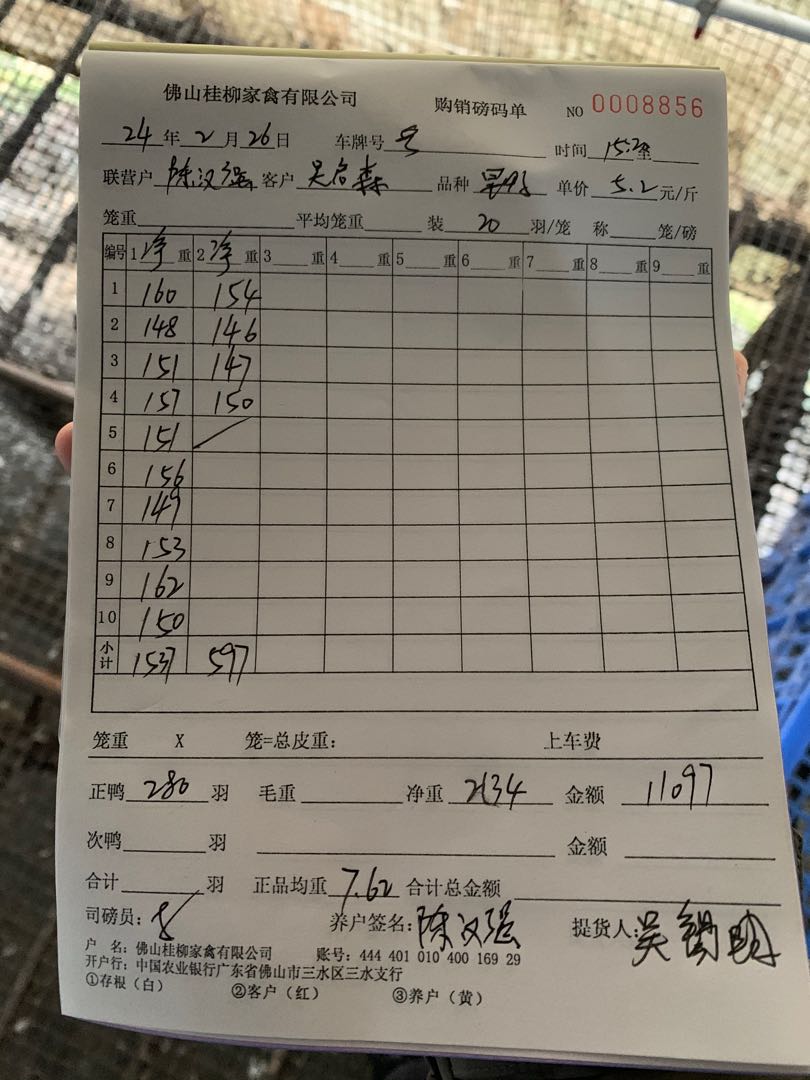 佛山桂柳家禽有限公司 购销磅码单 NO 0008856
24年2月26日 车牌号 时间 15:
联营户 陈汉强 客户 吴启森 品种 单价 5.2 元/斤
笼重 平均笼重 装 20 羽/笼 称 笼/磅
编号 1 净 重 2 净 重 3 重 4 重 5 重 6 重 7 重 8 重 9 重
1 160 154
2 148 146
3 151 147
4 157 150
5 151 /
6 156
7 149
8 153
9 162
10 150
小计 1537 597
笼重 X 笼=总皮重: 上车费
正鸭 280 羽 毛重 净重 2134 金额 11097
次鸭 羽 金额
合计 羽 正品均重 7.62 合计总金额
司磅员: 养户签名: 陈汉强 提货人: 吴锡明
户 名: 佛山桂柳家禽有限公司 账号: 444 401 010 400 169 29
开户行: 中国农业银行广东省佛山市三水区三水支行
①存根（白） ②客户（红） ③养户（黄）